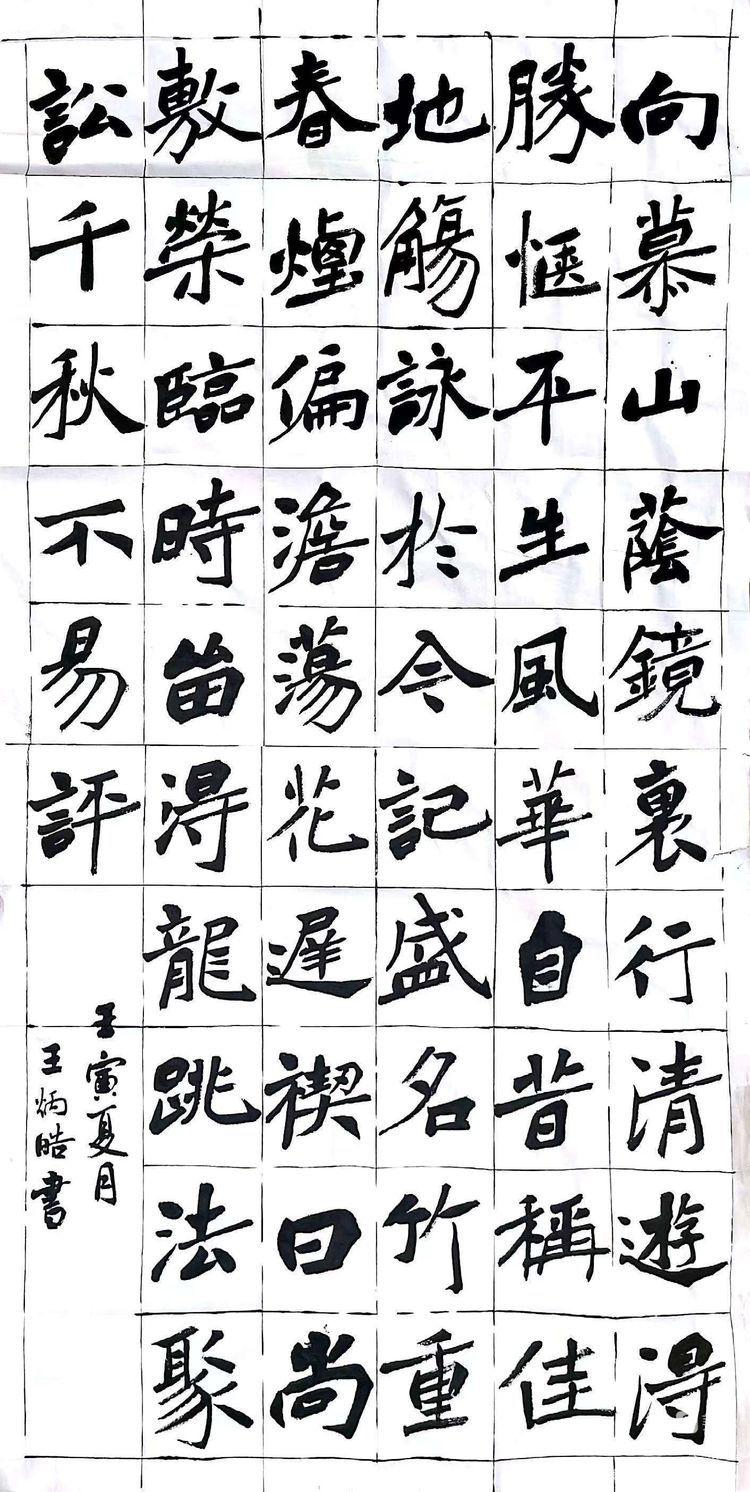 向慕山蔭鏡裏行清遊得
勝愜平生風華自昔稱佳
地觴詠於今記盛名竹重
春煙偏澹蕩花遲禊日尚
敷榮臨時留得龍跳法聚
訟千秋不易評
壬寅夏月
王炳皓書